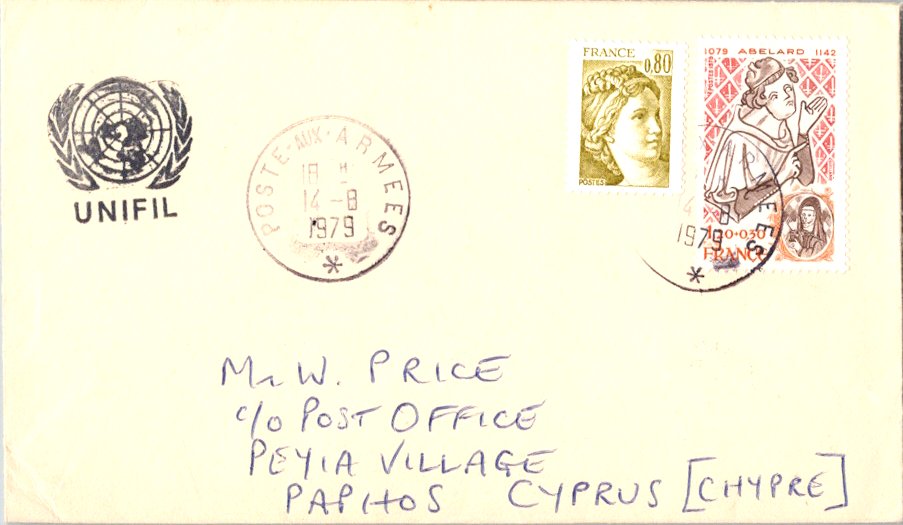 UNIFIL
POSTE-AUX-ARMEES
18 H
14-8
1979
*
FRANCE
0,80
POSTES
1079 ABELARD 1142
POSTES 1979
1,20+0,30
FRANCE
MEES
4 8
1979
*
Mr W. PRICE
c/o POST OFFICE
PEYIA VILLAGE
PAPHOS CYPRUS [CHYPRE]